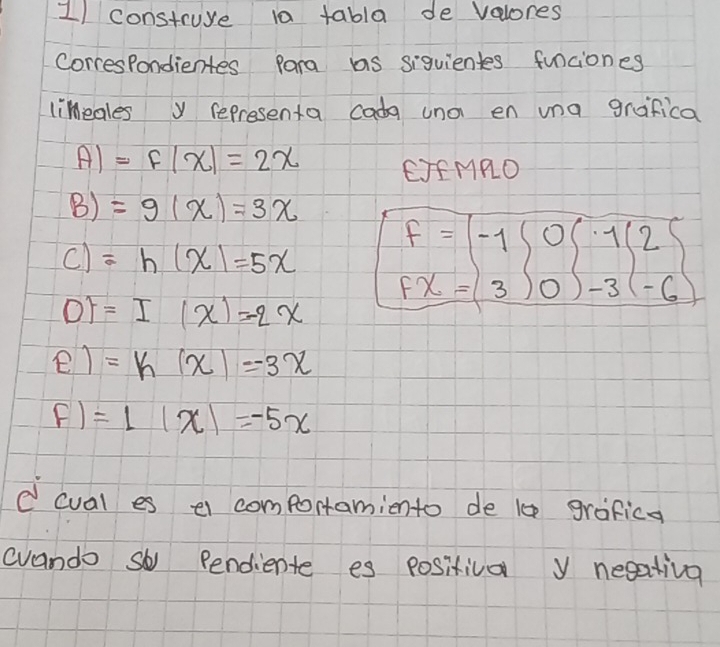 1) construye la tabla de valores
correspondientes para las siguientes funciones
lineales y representa cada una en una gráfica
A) = f(x) = 2x
EJEMPLO
B) = g(x) = 3x
f = -1 0 1 2
C) = h(x) = 5x
fx = 3 0 -3 -6
D) = I (x) = -2x
E) = K (x) = -3x
F) = l (x) = -5x
d cual es el comportamiento de la gráfica
cuando su pendiente es positiva y negativa